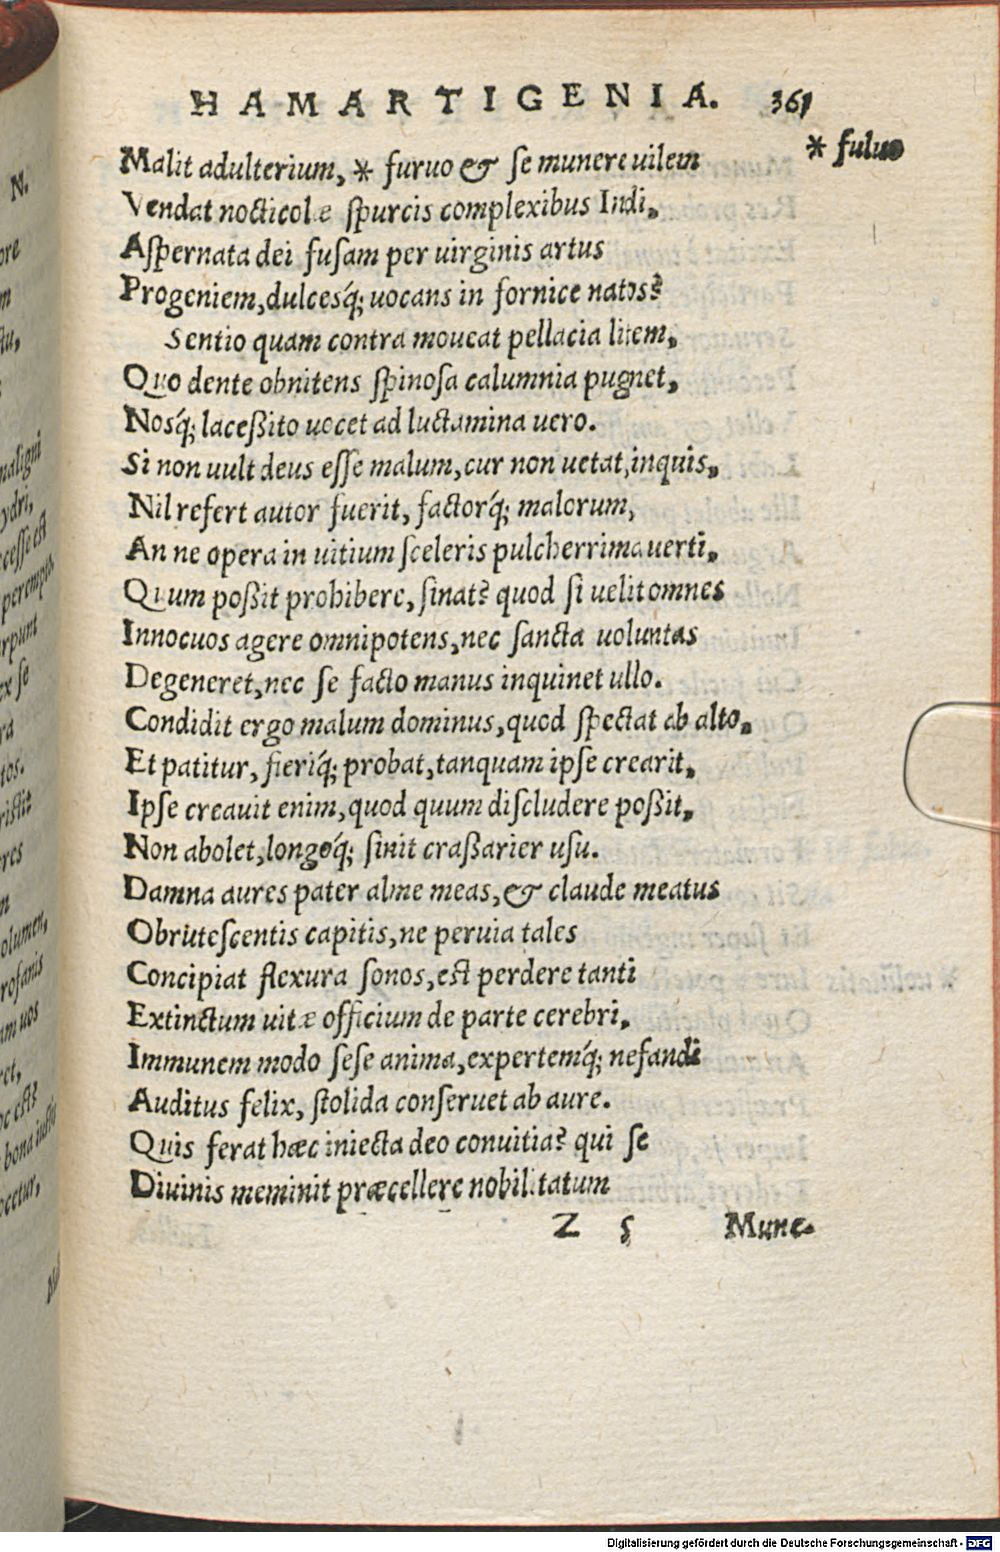 HAMARTIGENIA. 361
* fuluo
Malit adulterium, * furuo & ſe munere uilem
Vendat nocticolæ ſpurcis complexibus Indi,
Aſpernata dei fuſam per uirginis artus
Progeniem, dulcesq́; uocans in fornice natos?
Sentio quam contra moueat pellacia litem,
Quo dente obnitens ſpinoſa calumnia pugnet,
Nosq́; laceßito uocet ad luctamina uero.
Si non uult deus eſſe malum, cur non uetat, inquis,
Nil refert autor fuerit, factorq́; malorum,
An ne opera in uitium ſceleris pulcherrima uerti,
Quum poßit prohibere, ſinat? quod ſi uelit omnes
Innocuos agere omnipotens, nec ſancta uoluntas
Degeneret, nec ſe facto manus inquinet ullo.
Condidit ergo malum dominus, quod ſpectat ab alto,
Et patitur, fieriq́; probat, tanquam ipſe crearit,
Ipſe creauit enim, quod quum diſcludere poßit,
Non abolet, longoq́; ſinit craßarier uſu.
Damna aures pater alme meas, & claude meatus
Obruteſcentis capitis, ne peruia tales
Concipiat flexura ſonos, eſt perdere tanti
Extinctum uitæ officium de parte cerebri,
Immunem modo ſeſe anima, expertemq́; nefandi
Auditus felix, ſtolida conſeruet ab aure.
Quis ferat hæc iniecta deo conuitia? qui ſe
Diuinis meminit præcellere nobilitatum
Z 5 Mune-
N.
ore
maligni
ydri,
ceſſe eſt
perempth
rpunt
ex ſe
ra
tos.
riſtit
res
olumen,
rofanis
am uos
ret,
oc eſt?
bona iuſtis
ocetur,
Digitalisierung gefördert durch die Deutsche Forschungsgemeinschaft - DFG